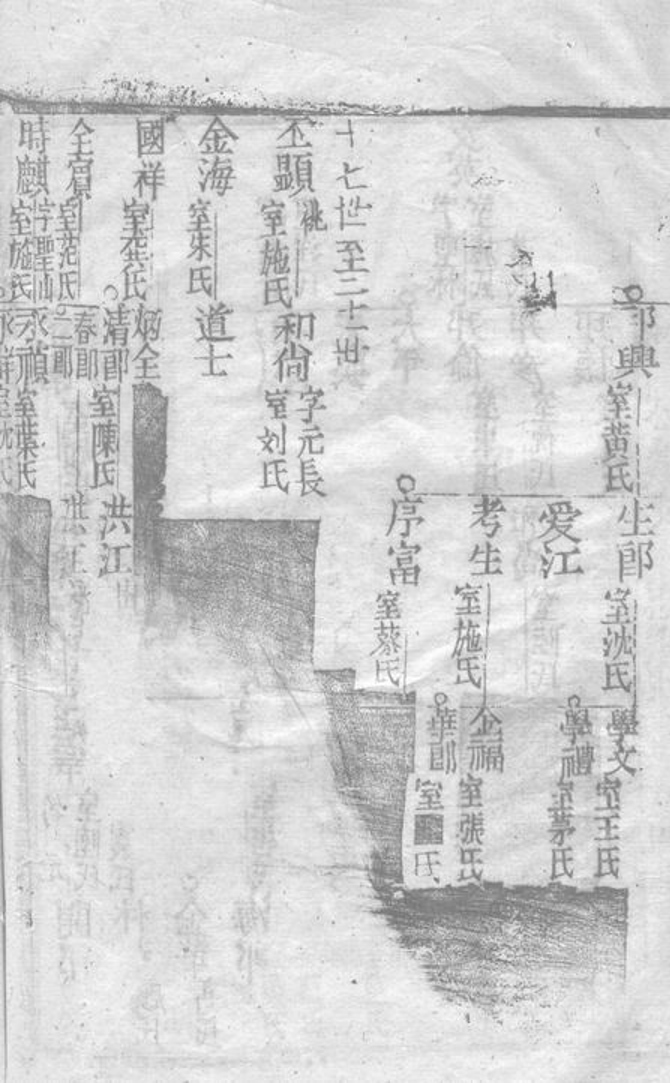 郎興
室黃氏
生郎
室沈氏
學文
室王氏
學禮
室茅氏
爱江
考生
室施氏
企福
室張氏
華郎
室 氏
序富
室蔡氏
十七世至二十一世
丕顯
桃
室施氏
和尙
字元長
室刘氏
金海
室朱氏
道士
國祥
室龚氏
炳全
清郎
室陳氏
洪江
全寶
室范氏
春郎
二郎
洪江
時麒
字聖仙
室施氏
永禎
室葉氏
室沈氏